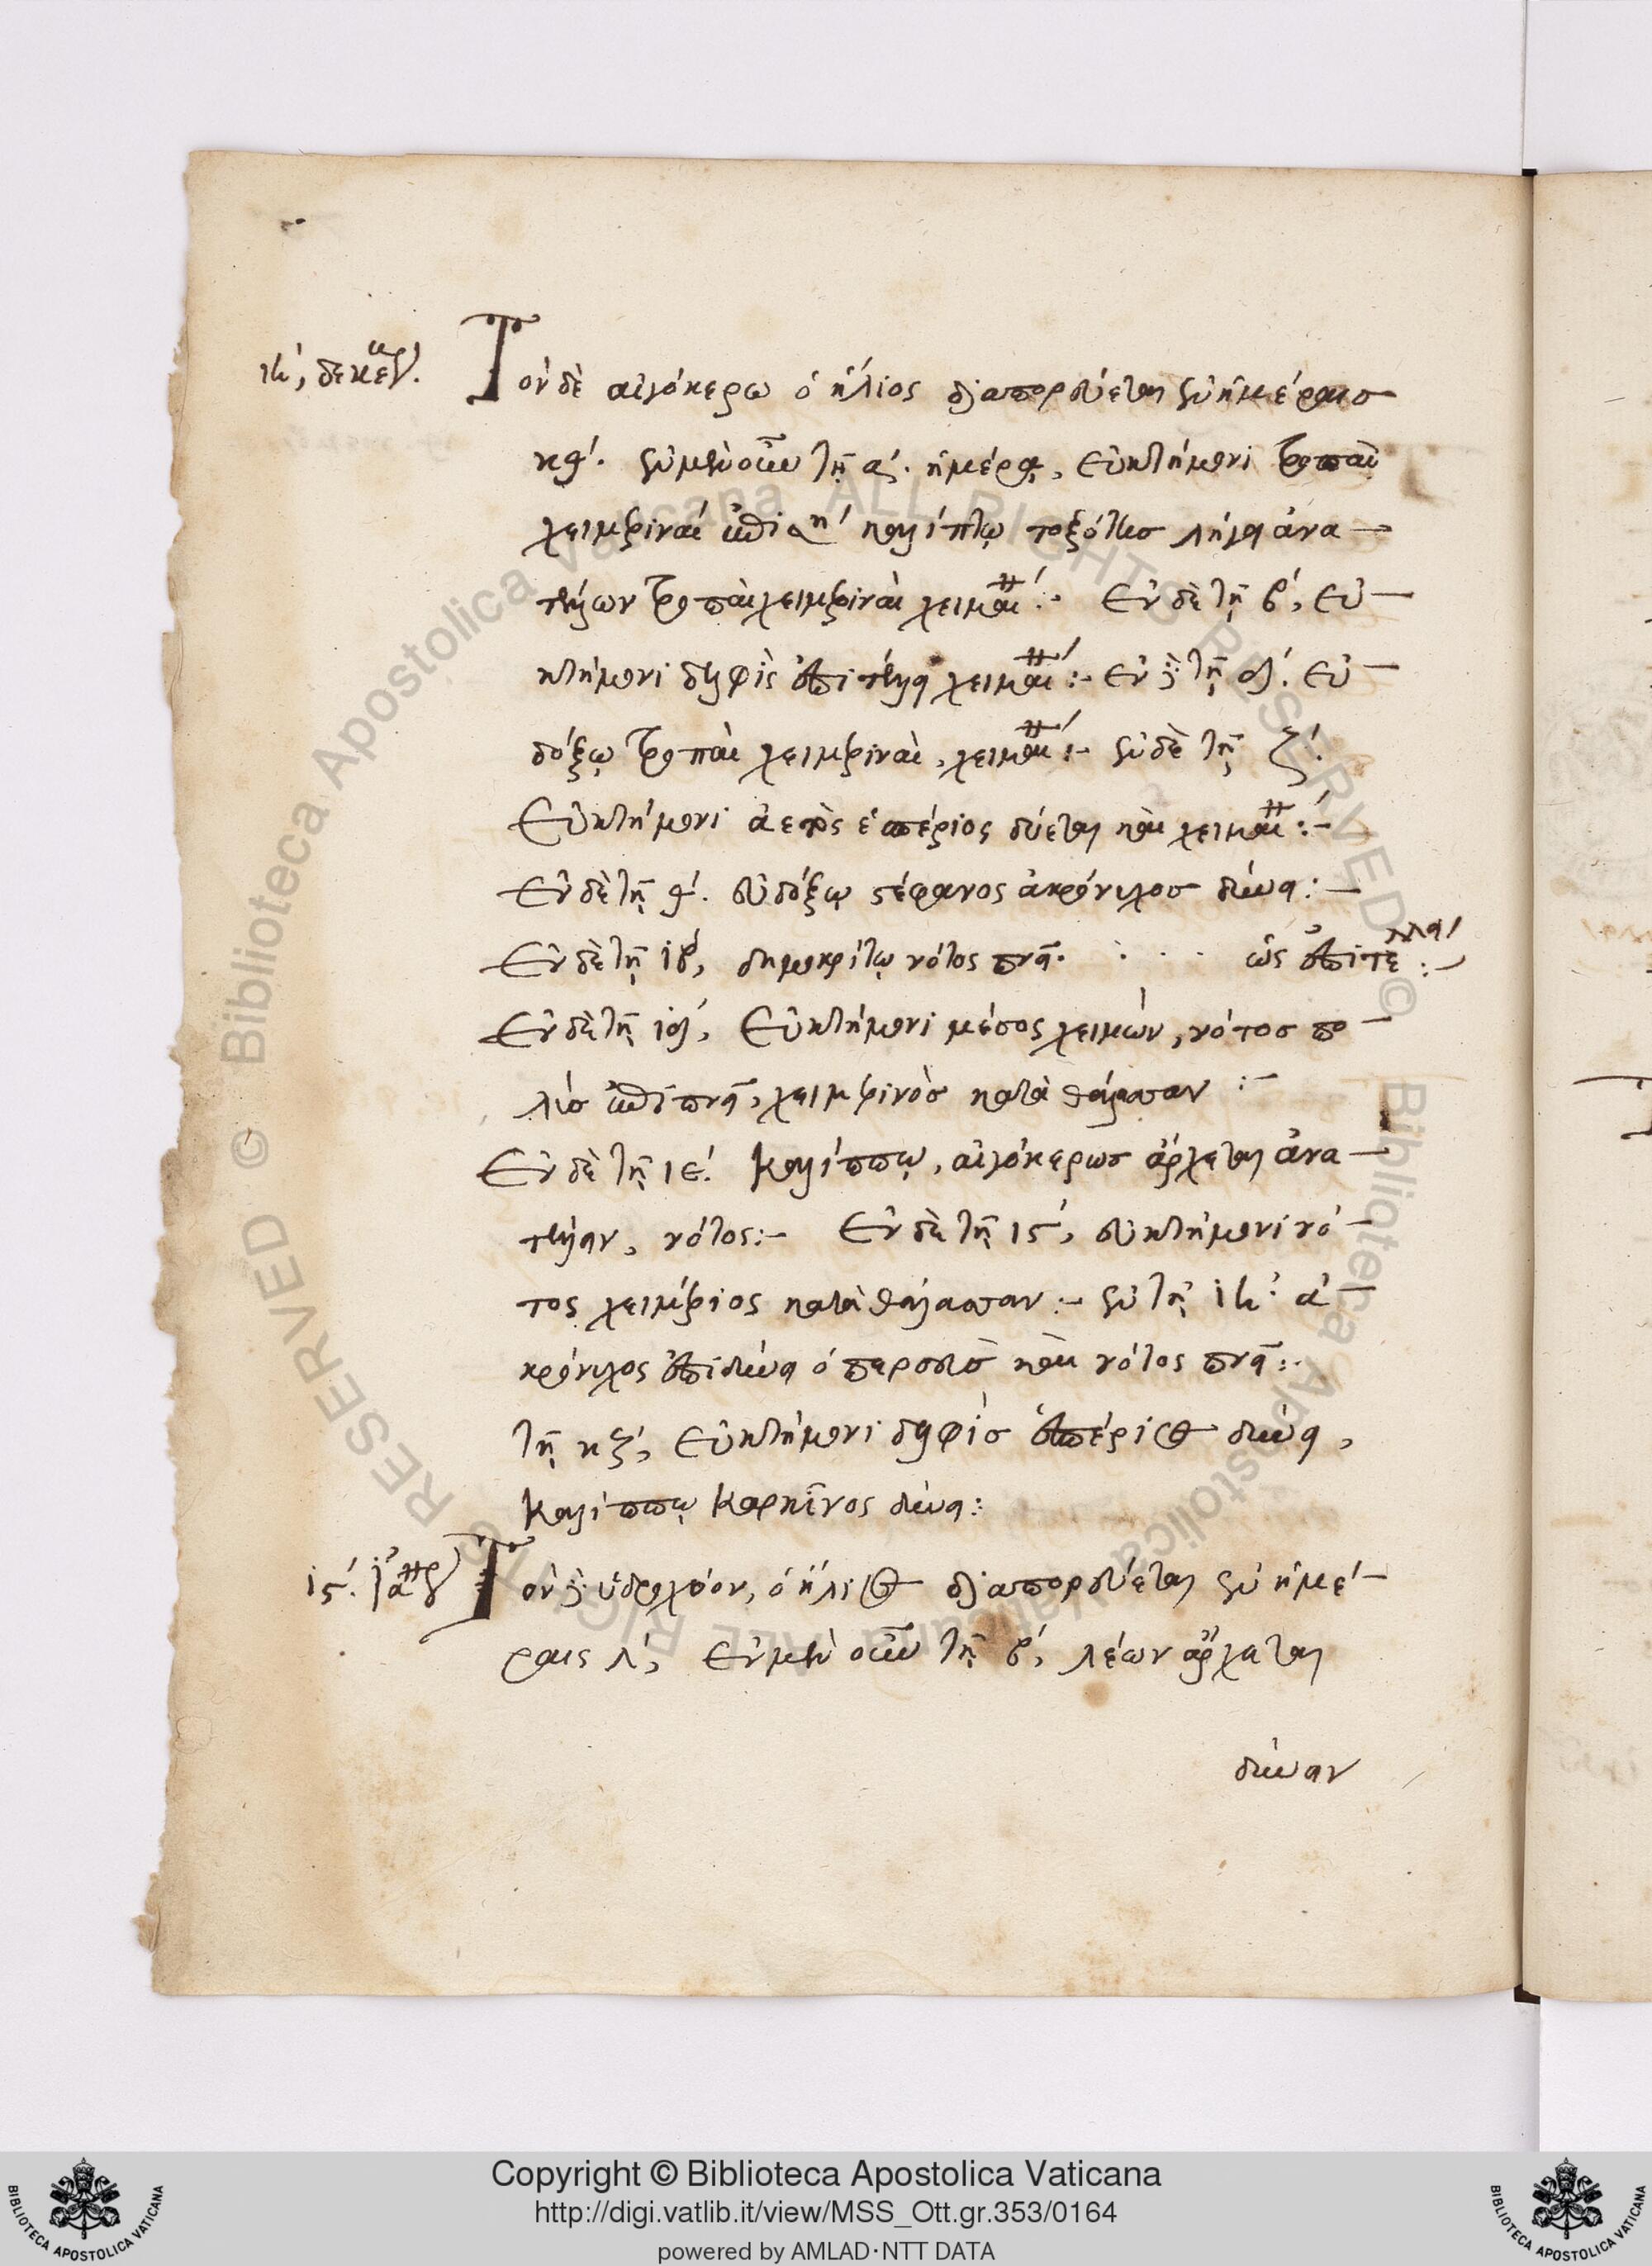 ιη, δεκεμβρ.
Τὸν δὲ αἰγόκερω ὁ ἥλιος διαπορεύεται ἐν ἡμέραις
κθ. ἐν μὲν οὖν τῇ α. ἡμέρᾳ, Εὐκτήμονι τροπαὶ
χειμεριναὶ καλίππῳ τοξότης λήγει ἀνα-
τέλλων τροπαὶ χειμεριναὶ χειμαίνει :· Ἐν δὲ τῇ β, Εὐ-
κτήμονι δελφὶς ἐπιτέλλει χειμαίνει :- ἐν δὲ τῇ δ. Εὐ-
δόξῳ τροπαὶ χειμεριναὶ, χειμαίνει :- ἐν δὲ τῇ ζ.
Εὐκτήμονι ἀετὸς ἑσπέριος δύεται καὶ χειμαίνει :-
Ἐν δὲ τῇ θ. εὐδόξῳ στέφανος ἀκρόνυχος δύνει :-
Ἐν δὲ τῇ ιβ, δημοκρίτῳ νότος πνεῖ. · · · ὡς ἐπιτέλλει :-
Ἐν δὲ τῇ ιδ, Εὐκτήμονι μέσος χειμών, νότος πο-
λὺς ἐπιπνεῖ, χειμερινὸς κατὰ θάλασσαν :-
Ἐν δὲ τῇ ιε. Καλίππῳ, αἰγόκερως ἄρχεται ἀνα-
τέλλειν, νότος :- Ἐν δὲ τῇ ις, εὐκτήμονι νό-
τος χειμέριος κατὰ θάλασσαν :- ἐν τῇ ιη ἀ-
κρόνυχος ἐπιδύνει ὁ καὶ νότος πνεῖ :·
τῇ κζ, Εὐκτήμονι δελφὶς ἑσπέριος δύνει,
Καλίππῳ Καρκῖνος δύνει :
ις. ἰαννουαρ Τὸν δὲ ὑδροχόον, ὁ ἥλιος διαπορεύεται ἐν ἡμέ-
ραις λ, ἐν μὲν οὖν τῇ β, λέων ἄρχεται
δύνειν
Copyright © Biblioteca Apostolica Vaticana
http://digi.vatlib.it/view/MSS_Ott.gr.353/0164
powered by AMLAD·NTT DATA
BIBLIOTECA APOSTOLICA VATICANA
BIBLIOTECA APOSTOLICA VATICANA
© Biblioteca Apostolica Vaticana ALL RIGHTS RESERVED
© Biblioteca Apostolica Vaticana ALL RIGHTS RESERVED